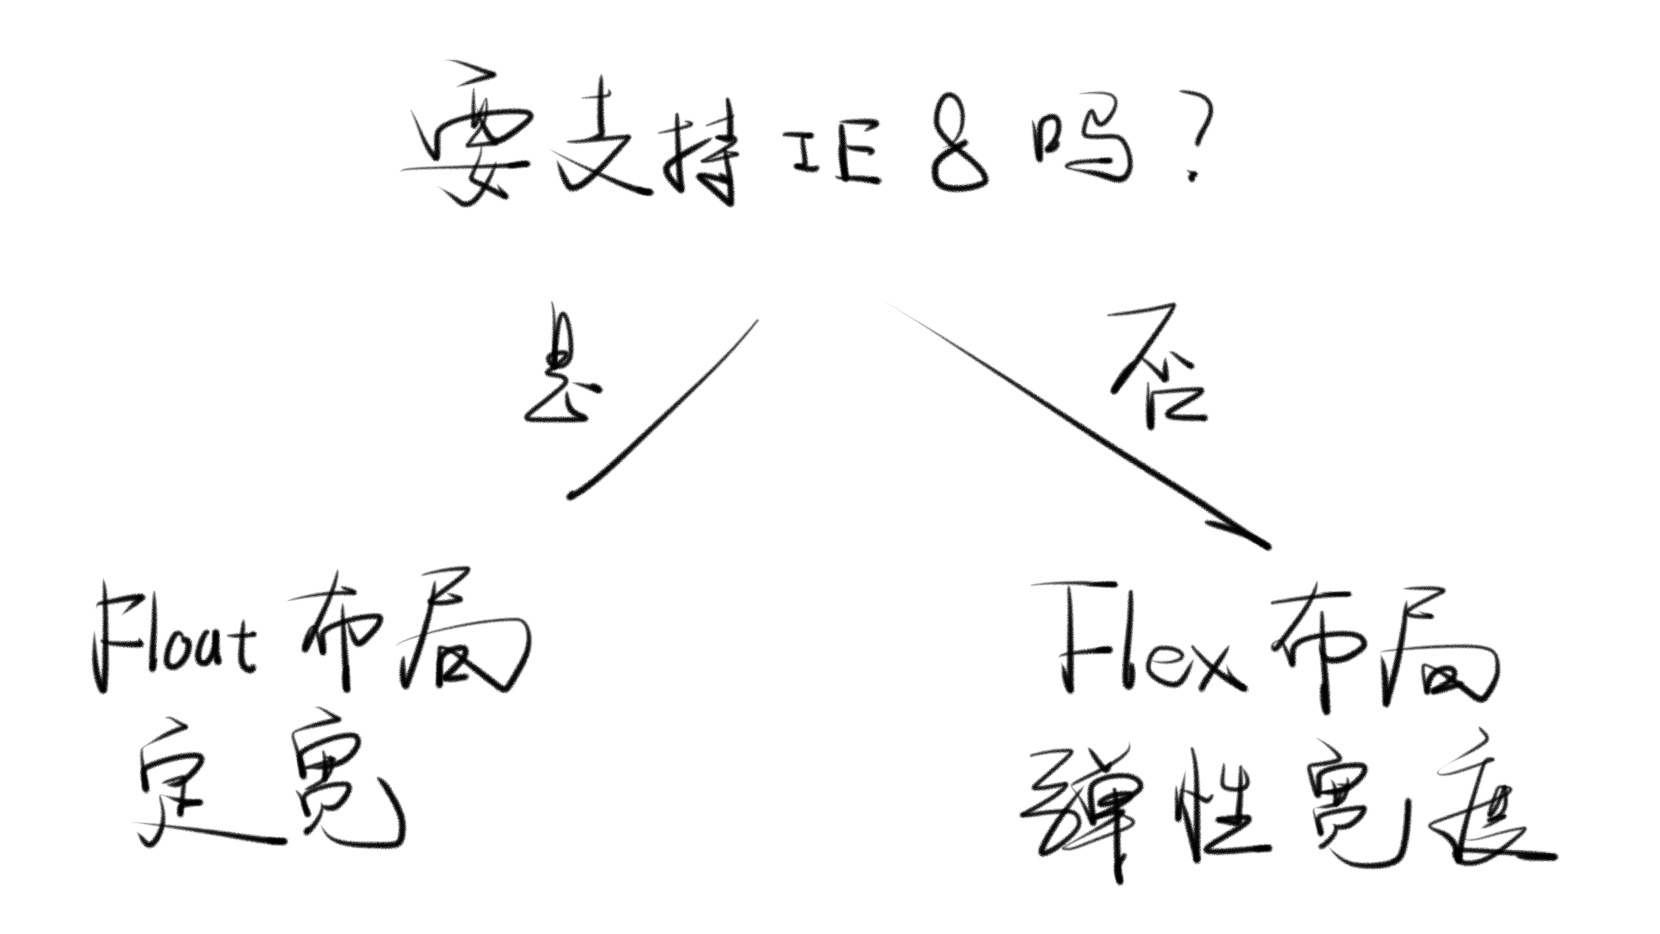 要支持IE8吗？
是
否
Float布局
定宽
Flex布局
弹性宽度